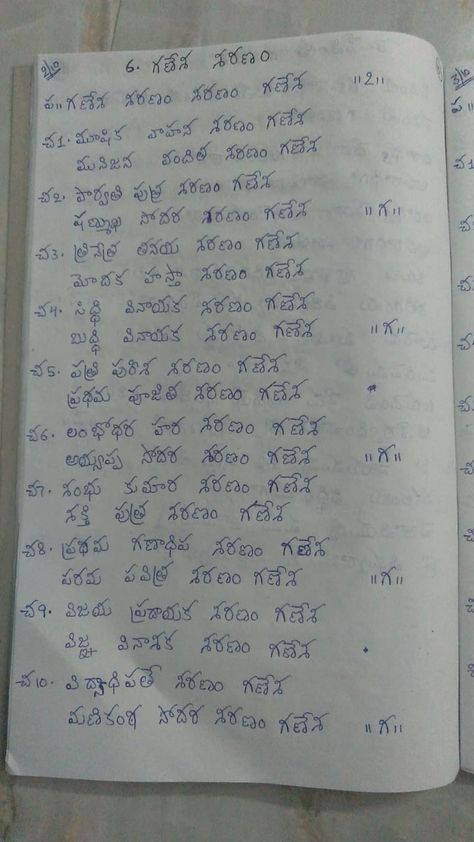 2/10
6. గణేశ శరణం
ప॥ గణేశ శరణం శరణం గణేశ ॥2॥
చ1. మూషిక వాహన శరణం గణేశ
మునిజన వందిత శరణం గణేశ
చ2. పార్వతి పుత్ర శరణం గణేశ
షణ్ముఖ సోదర శరణం గణేశ ॥గ॥
చ3. త్రినేత్ర తనయ శరణం గణేశ
మోదక హస్తా శరణం గణేశ
చ4. సిద్ధి వినాయక శరణం గణేశ
బుద్ధి వినాయక శరణం గణేశ ॥గ॥
చ5. పత్రి పురిశ శరణం గణేశ
ప్రథమ పూజిత శరణం గణేశ
చ6. లంభోధర హర శరణం గణేశ
అయ్యప్ప సోదర శరణం గణేశ ॥గ॥
చ7. శంభు కుమార శరణం గణేశ
శక్తి పుత్ర శరణం గణేశ
చ8. ప్రథమ గణాధిప శరణం గణేశ
పరమ పవిత్ర శరణం గణేశ ॥గ॥
చ9. విజయ ప్రదాయక శరణం గణేశ
విజ్ఞ వినాశిక శరణం గణేశ
చ10. విద్యాధిపతే శరణం గణేశ
మణికంఠ సోదర శరణం గణేశ ॥గ॥
3/10
ప॥
చ1